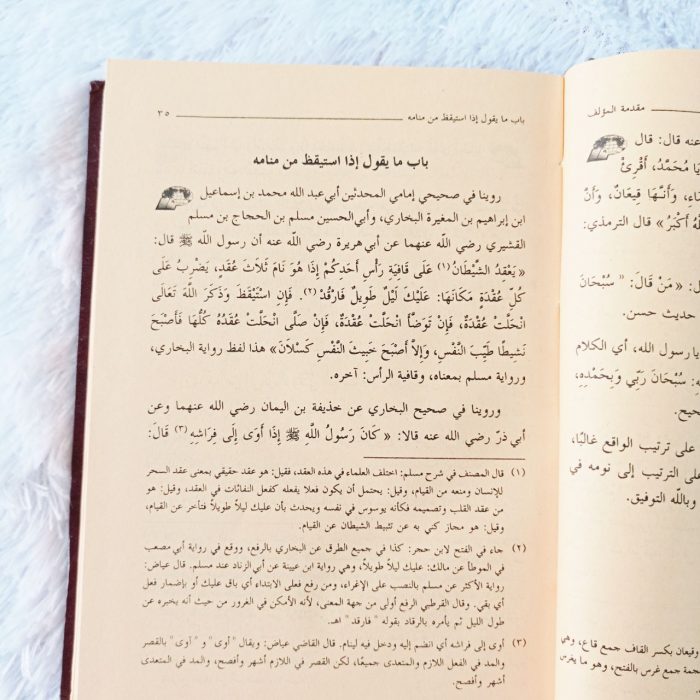 مقدمة المؤلف
عنه قال: قال
يَا مُحَمَّدُ، أَقْرِئْ
وَأَنَّهَا قِيعَانٌ، وَأَنَّ
أَكْبَرُ» قال الترمذي:
«مَنْ قَالَ: " سُبْحَانَ
حديث حسن.
يا رسول الله، أي الكلام
سُبْحَانَ رَبِّي وَبِحَمْدِهِ،
على ترتيب الواقع غالبًا،
على الترتيب إلى نومه في
وبالله التوفيق.
وقيعان بكسر القاف جمع قاع، وهي
جمع غرس بالفتح، وهو ما يغرس
باب ما يقول إذا استيقظ من منامه ٣٥
باب ما يقول إذا استيقظ من منامه
روينا في صحيحي إمامي المحدثين أبي عبد الله محمد بن إسماعيل
ابن إبراهيم بن المغيرة البخاري، وأبي الحسين مسلم بن الحجاج بن مسلم
القشيري رضي الله عنهما عن أبي هريرة رضي الله عنه أن رسول الله ﷺ قال:
«يَعْقِدُ الشَّيْطَانُ(١) عَلَى قَافِيَةِ رَأْسِ أَحَدِكُمْ إِذَا هُوَ نَامَ ثَلَاثَ عُقَدٍ، يَضْرِبُ عَلَى
كُلِّ عُقْدَةٍ مَكَانَهَا: عَلَيْكَ لَيْلٌ طَوِيلٌ فَارْقُدْ(٢). فَإِنِ اسْتَيْقَظَ وَذَكَرَ اللَّهَ تَعَالَى
انْحَلَّتْ عُقْدَةٌ، فَإِنْ تَوَضَّأَ انْحَلَّتْ عُقْدَةٌ، فَإِنْ صَلَّى انْحَلَّتْ عُقَدُهُ كُلُّهَا فَأَصْبَحَ
نَشِيطًا طَيِّبَ النَّفْسِ، وَإِلاَّ أَصْبَحَ خَبِيثَ النَّفْسِ كَسْلَانَ» هذا لفظ رواية البخاري،
ورواية مسلم بمعناه، وقافية الرأس: آخره.
وروينا في صحيح البخاري عن حذيفة بن اليمان رضي الله عنهما وعن
أبي ذرّ رضي الله عنه قالا: «كَانَ رَسُولُ اللَّهِ ﷺ إِذَا أَوَى إِلَى فِرَاشِهِ(٣) قَالَ:
(١) قال المصنف في شرح مسلم: اختلف العلماء في هذه العقد، فقيل: هو عقد حقيقي بمعنى عقد السحر
للإنسان ومنعه من القيام، وقيل: يحتمل أن يكون فعلا يفعله كفعل النفاثات في العقد، وقيل: هو
من عقد القلب وتصميمه فكأنه يوسوس في نفسه ويحدث بأن عليك ليلاً طويلاً فتأخر عن القيام،
وقيل: هو مجاز كني به عن تثبيط الشيطان عن القيام.
(٢) جاء في الفتح لابن حجر: كذا في جميع الطرق عن البخاري بالرفع، ووقع في رواية أبي مصعب
في الموطأ عن مالك: عليك ليلاً طويلاً، وهي رواية ابن عيينة عن أبي الزناد عند مسلم. قال عياض:
رواية الأكثر عن مسلم بالنصب على الإغراء، ومن رفع فعلى الابتداء أي باق عليك أو بإضمار فعل
أي بقي. وقال القرطبي الرفع أولى من جهة المعنى، لأنه الأمكن في الغرور من حيث أنه يخبره عن
طول الليل ثم يأمره بالرقاد بقوله " فارقد " اهـ.
(٣) أوى إلى فراشه أي انضم إليه ودخل فيه لينام. قال القاضي عياض: ويقال " أوى " و " آوى " بالقصر
والمد في الفعل اللازم والمتعدى جميعًا، لكن القصر في اللازم أشهر وأفصح، والمد في المتعدى
أشهر وأفصح.